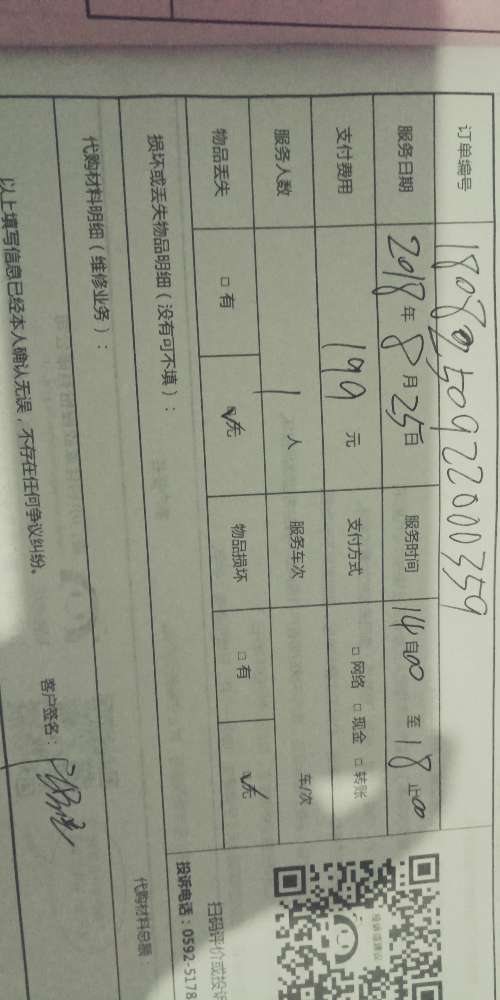 订单编号 1808250922000359
服务日期 2018年8月25日 服务时间 14:00 至 18:00止
支付费用 199元 支付方式 □ 网络 □ 现金 □ 转账
服务人数 1人 服务车次 车/次
物品丢失 □ 有 ☑无 物品损坏 □ 有 ☑无
损坏或丢失物品明细（没有可不填）：
扫码评价或投诉
投诉电话：0592-5178
代购材料明细（维修业务）：
代购材料总额：
以上填写信息已经本人确认无误，不存在任何争议纠纷。
客户签名：
投诉或建议